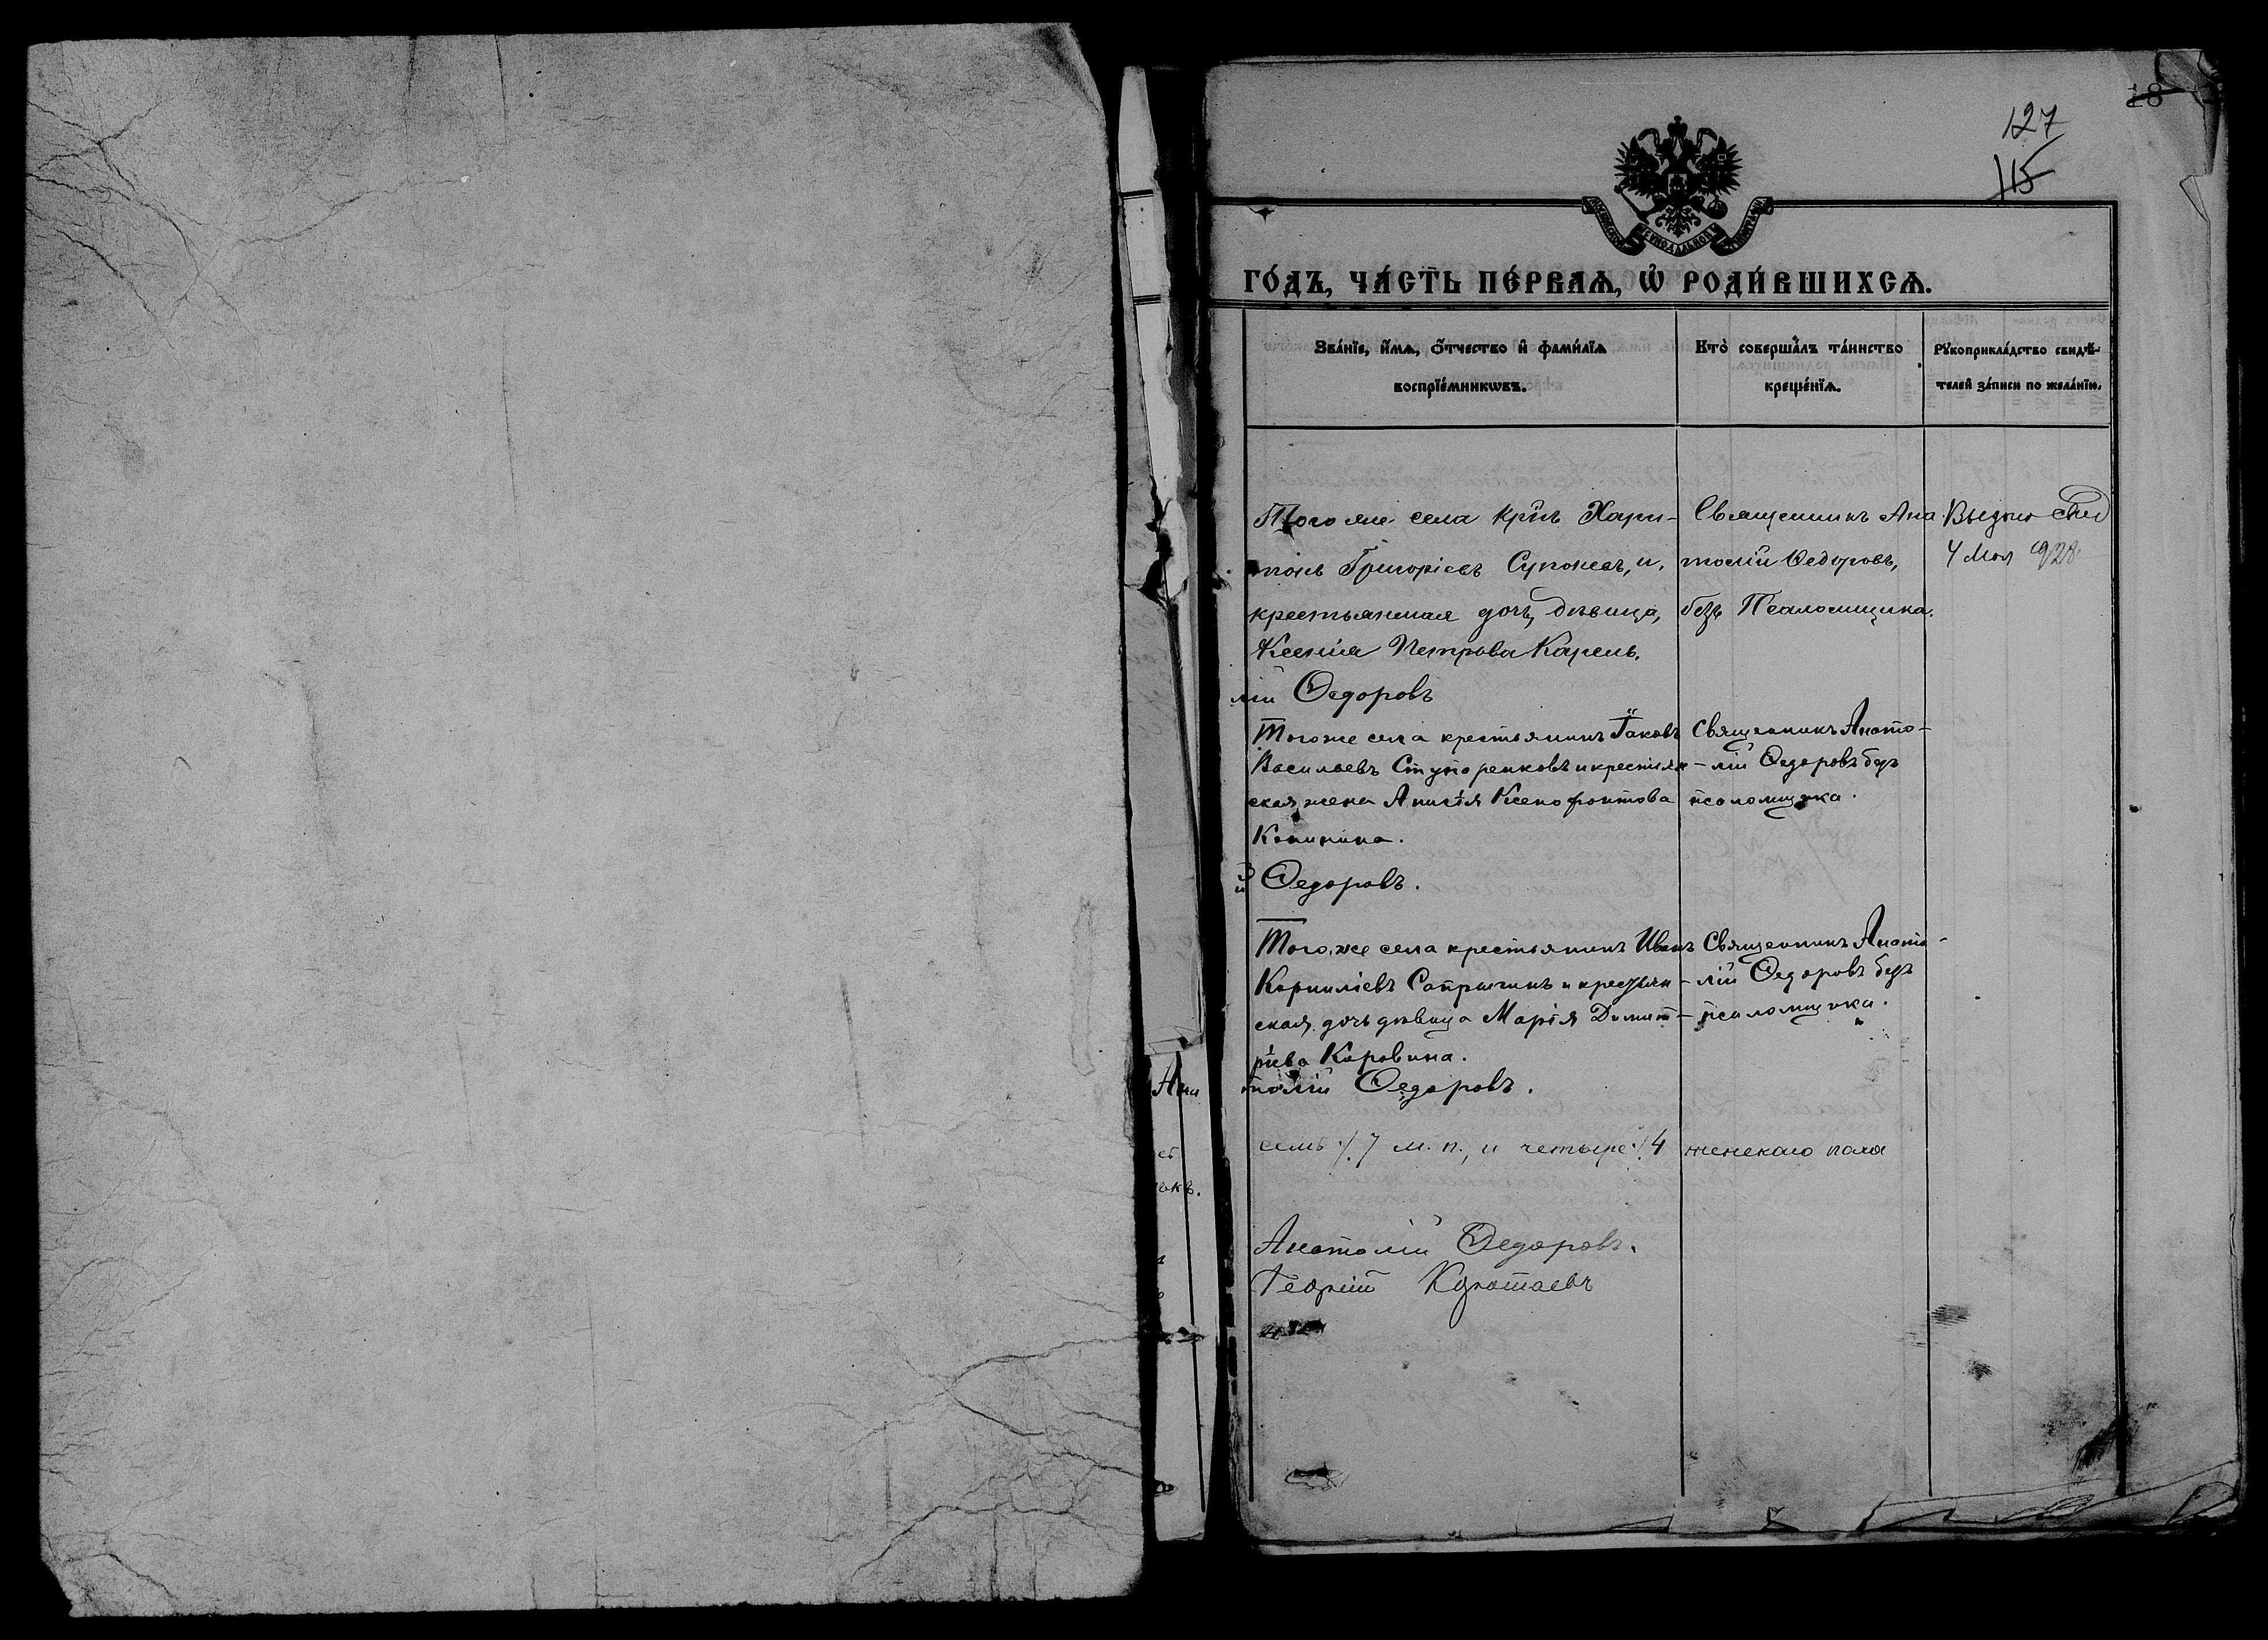 18
127
115
МОСКОВСКОЙ СѴНОДАЛЬНОЙ ТИПОГРАФІИ
ГО́ДЪ, ЧА́СТЬ ПЕ́РВАѦ, Ѡ҆ РОДИ́ВШИХСѦ.
Зва́нїе, и҆́мѧ, ѻ҆́тчество и҆ фами́лїѧ
воспрїе́мникѡвъ.
Кто̀ соверша́лъ та́инство
креще́нїѧ.
Рꙋкоприкла́дство свидѣ́-
телей за́писи по жела́нїю.
Того же села кр҃нъ Хари-
тонъ Григоріевъ Супоневъ, и
крестьянская дочь, дѣвица,
Ксенія Петрова Карень.
Священникъ Ана
толій Ѳедоровъ,
безъ Псаломщика.
Выдано свид
4 Мая 1928
лій Ѳедоровъ
Того же села крестьянинъ Іаковъ
Васильевъ Ступоренковъ и крестьян
ская жена Анисія Ксенофонтова
Конинина.
Священникъ Анато-
-лій Ѳедоровъ безъ
псаломщика.
й Ѳедоровъ.
Того же села крестьянинъ Иванъ
Корниліевъ Сапрыкинъ и крестьян
ская дочь дѣвица Марія Димит-
ріева Коровина.
Священникъ Анато-
-лій Ѳедоровъ безъ
псаломщика.
Ана
толій Ѳедоровъ.
семь /. 7 м. п., и четыре /. 4 женскаго пола
Анатолій Ѳедоровъ.
Георгій Коротаевъ